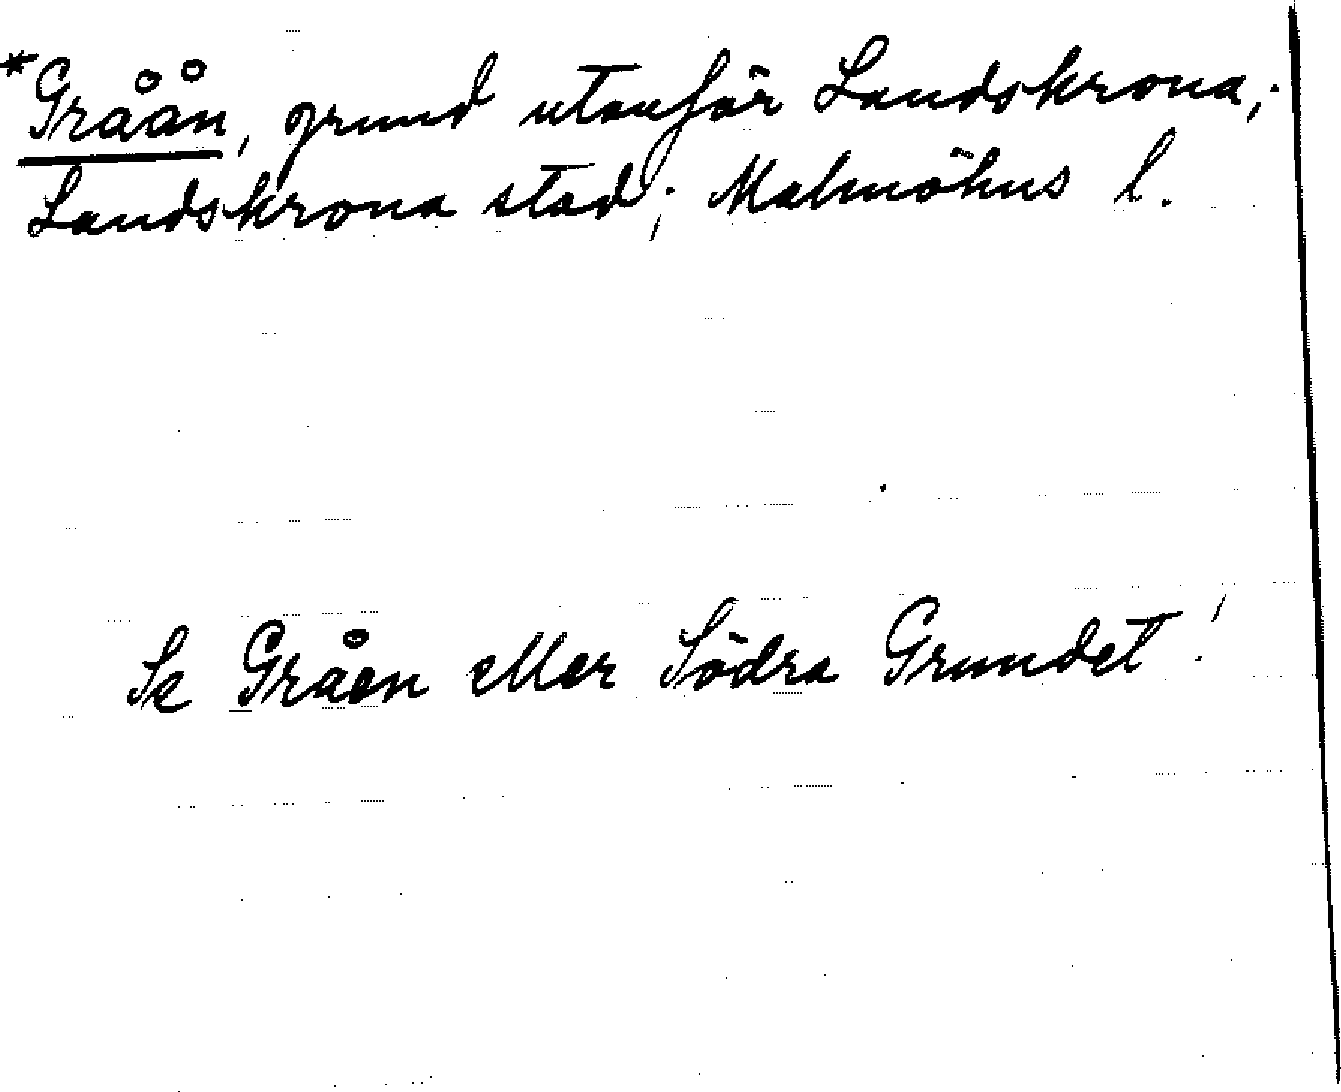 *Gråån, grund utanför Landskrona;
Landskrona stad; Malmöhus l.
Se Gråen eller Södra Grundet!